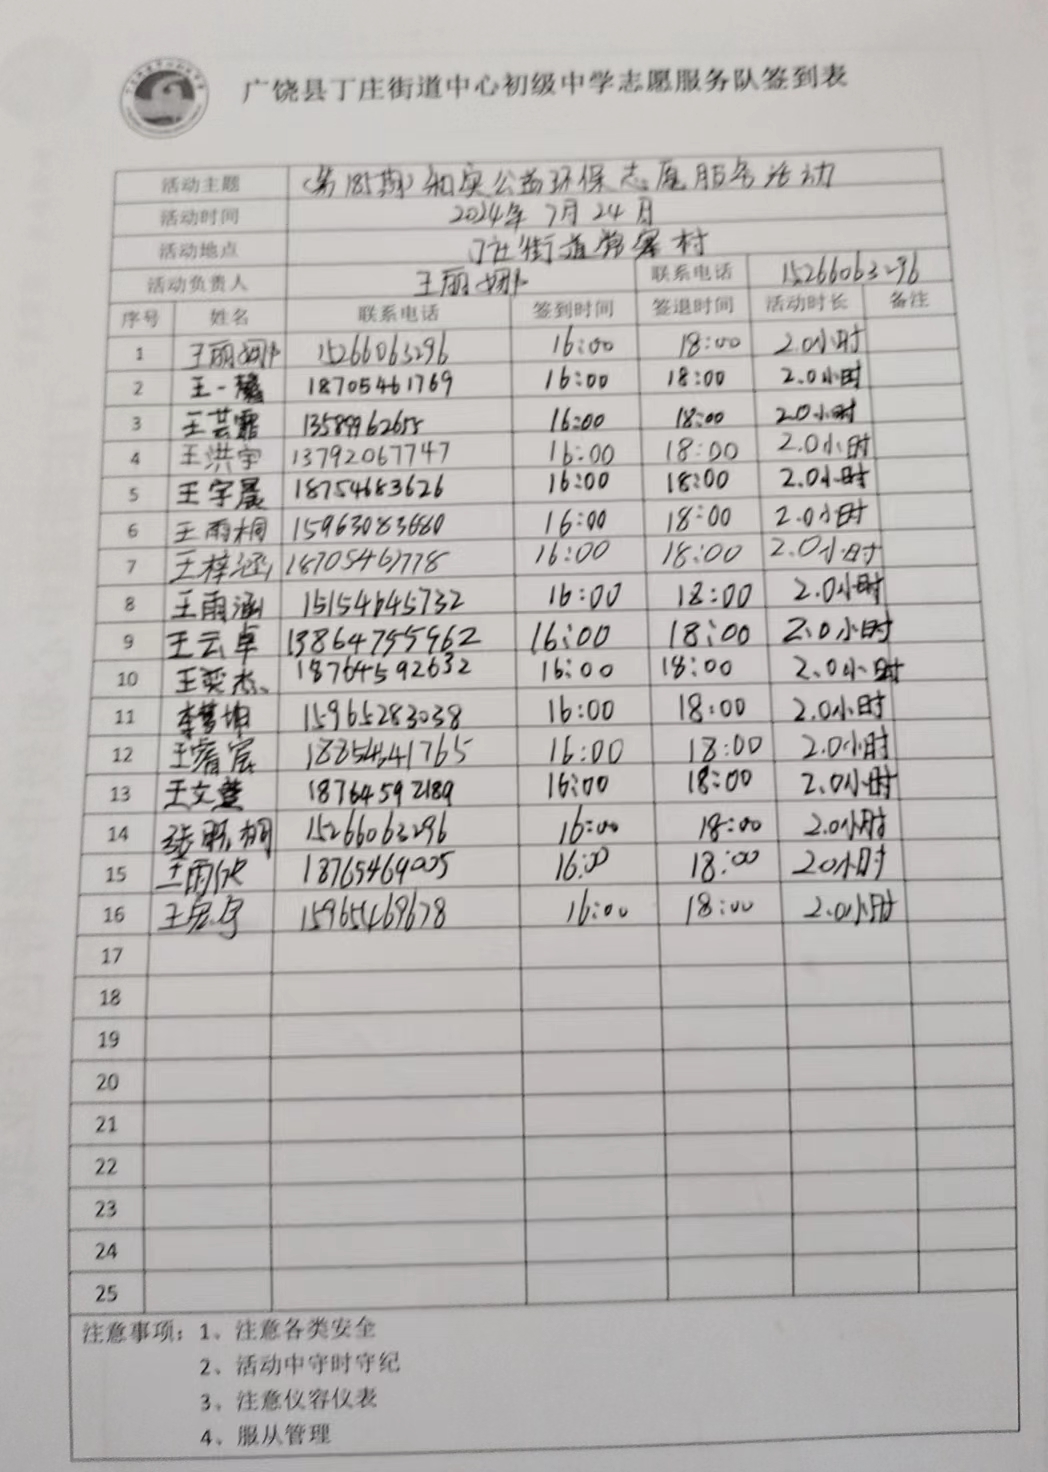 广饶县丁庄街道中心初级中学志愿服务队签到表
活动主题 (第185期)和实公益环保志愿服务活动
活动时间 2024年7月24日
活动地点 丁庄街道常家村
活动负责人 王丽娜 联系电话 15266063296
序号 姓名 联系电话 签到时间 签退时间 活动时长 备注
1 王丽娜 15266063296 16:00 18:00 2.0小时
2 王一馨 18705461769 16:00 18:00 2.0小时
3 王芸霏 13589962655 16:00 18:00 2.0小时
4 王洪宇 13792067747 16:00 18:00 2.0小时
5 王宇晨 18754683626 16:00 18:00 2.0小时
6 王雨桐 15963083680 16:00 18:00 2.0小时
7 王梓涵 18705461778 16:00 18:00 2.0小时
8 王雨涵 15154645732 16:00 18:00 2.0小时
9 王云卓 13864755962 16:00 18:00 2.0小时
10 王奕杰 18764592632 16:00 18:00 2.0小时
11 李梦坤 15965283038 16:00 18:00 2.0小时
12 王睿宸 16:00 18:00 2.0小时
13 王文萱 18764592189 16:00 18:00 2.0小时
14 15266063296 16:00 18:00 2.0小时
15 王雨欣 18765469005 16:00 18:00 2.0小时
16 15965469678 16:00 18:00 2.0小时
17
18
19
20
21
22
23
24
25
注意事项：1、注意各类安全
2、活动中守时守纪
3、注意仪容仪表
4、服从管理